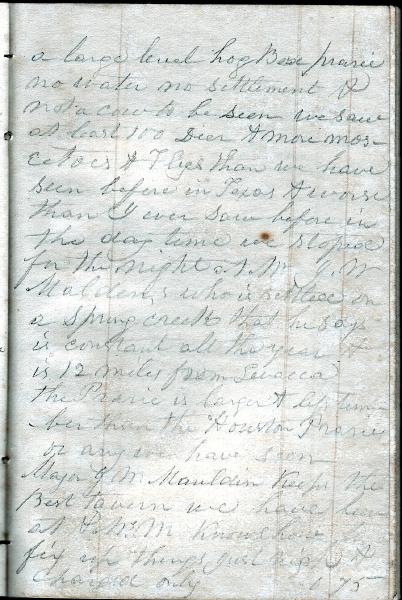 a large level hog Bax prarie
no water no settlement &
not a cow to be seen we saw
at least 100 Deer & more mos-
cetoes & Flyes than we have
seen before in Texas & worse
than I ever saw before in
the day time we stoped
for the night at Mr J. W
Maldens who is settled on
a Spring creek that he says
is constant all the year &
is 12 miles from Lavacca
the Prarie is larger & less tim-
ber than the Houston Prarie
or any we have seen
Major J M Mauldin Keeps the
Best tavern we have been
at & Mrs M Knows how to
fix up things just right &
charged only 75